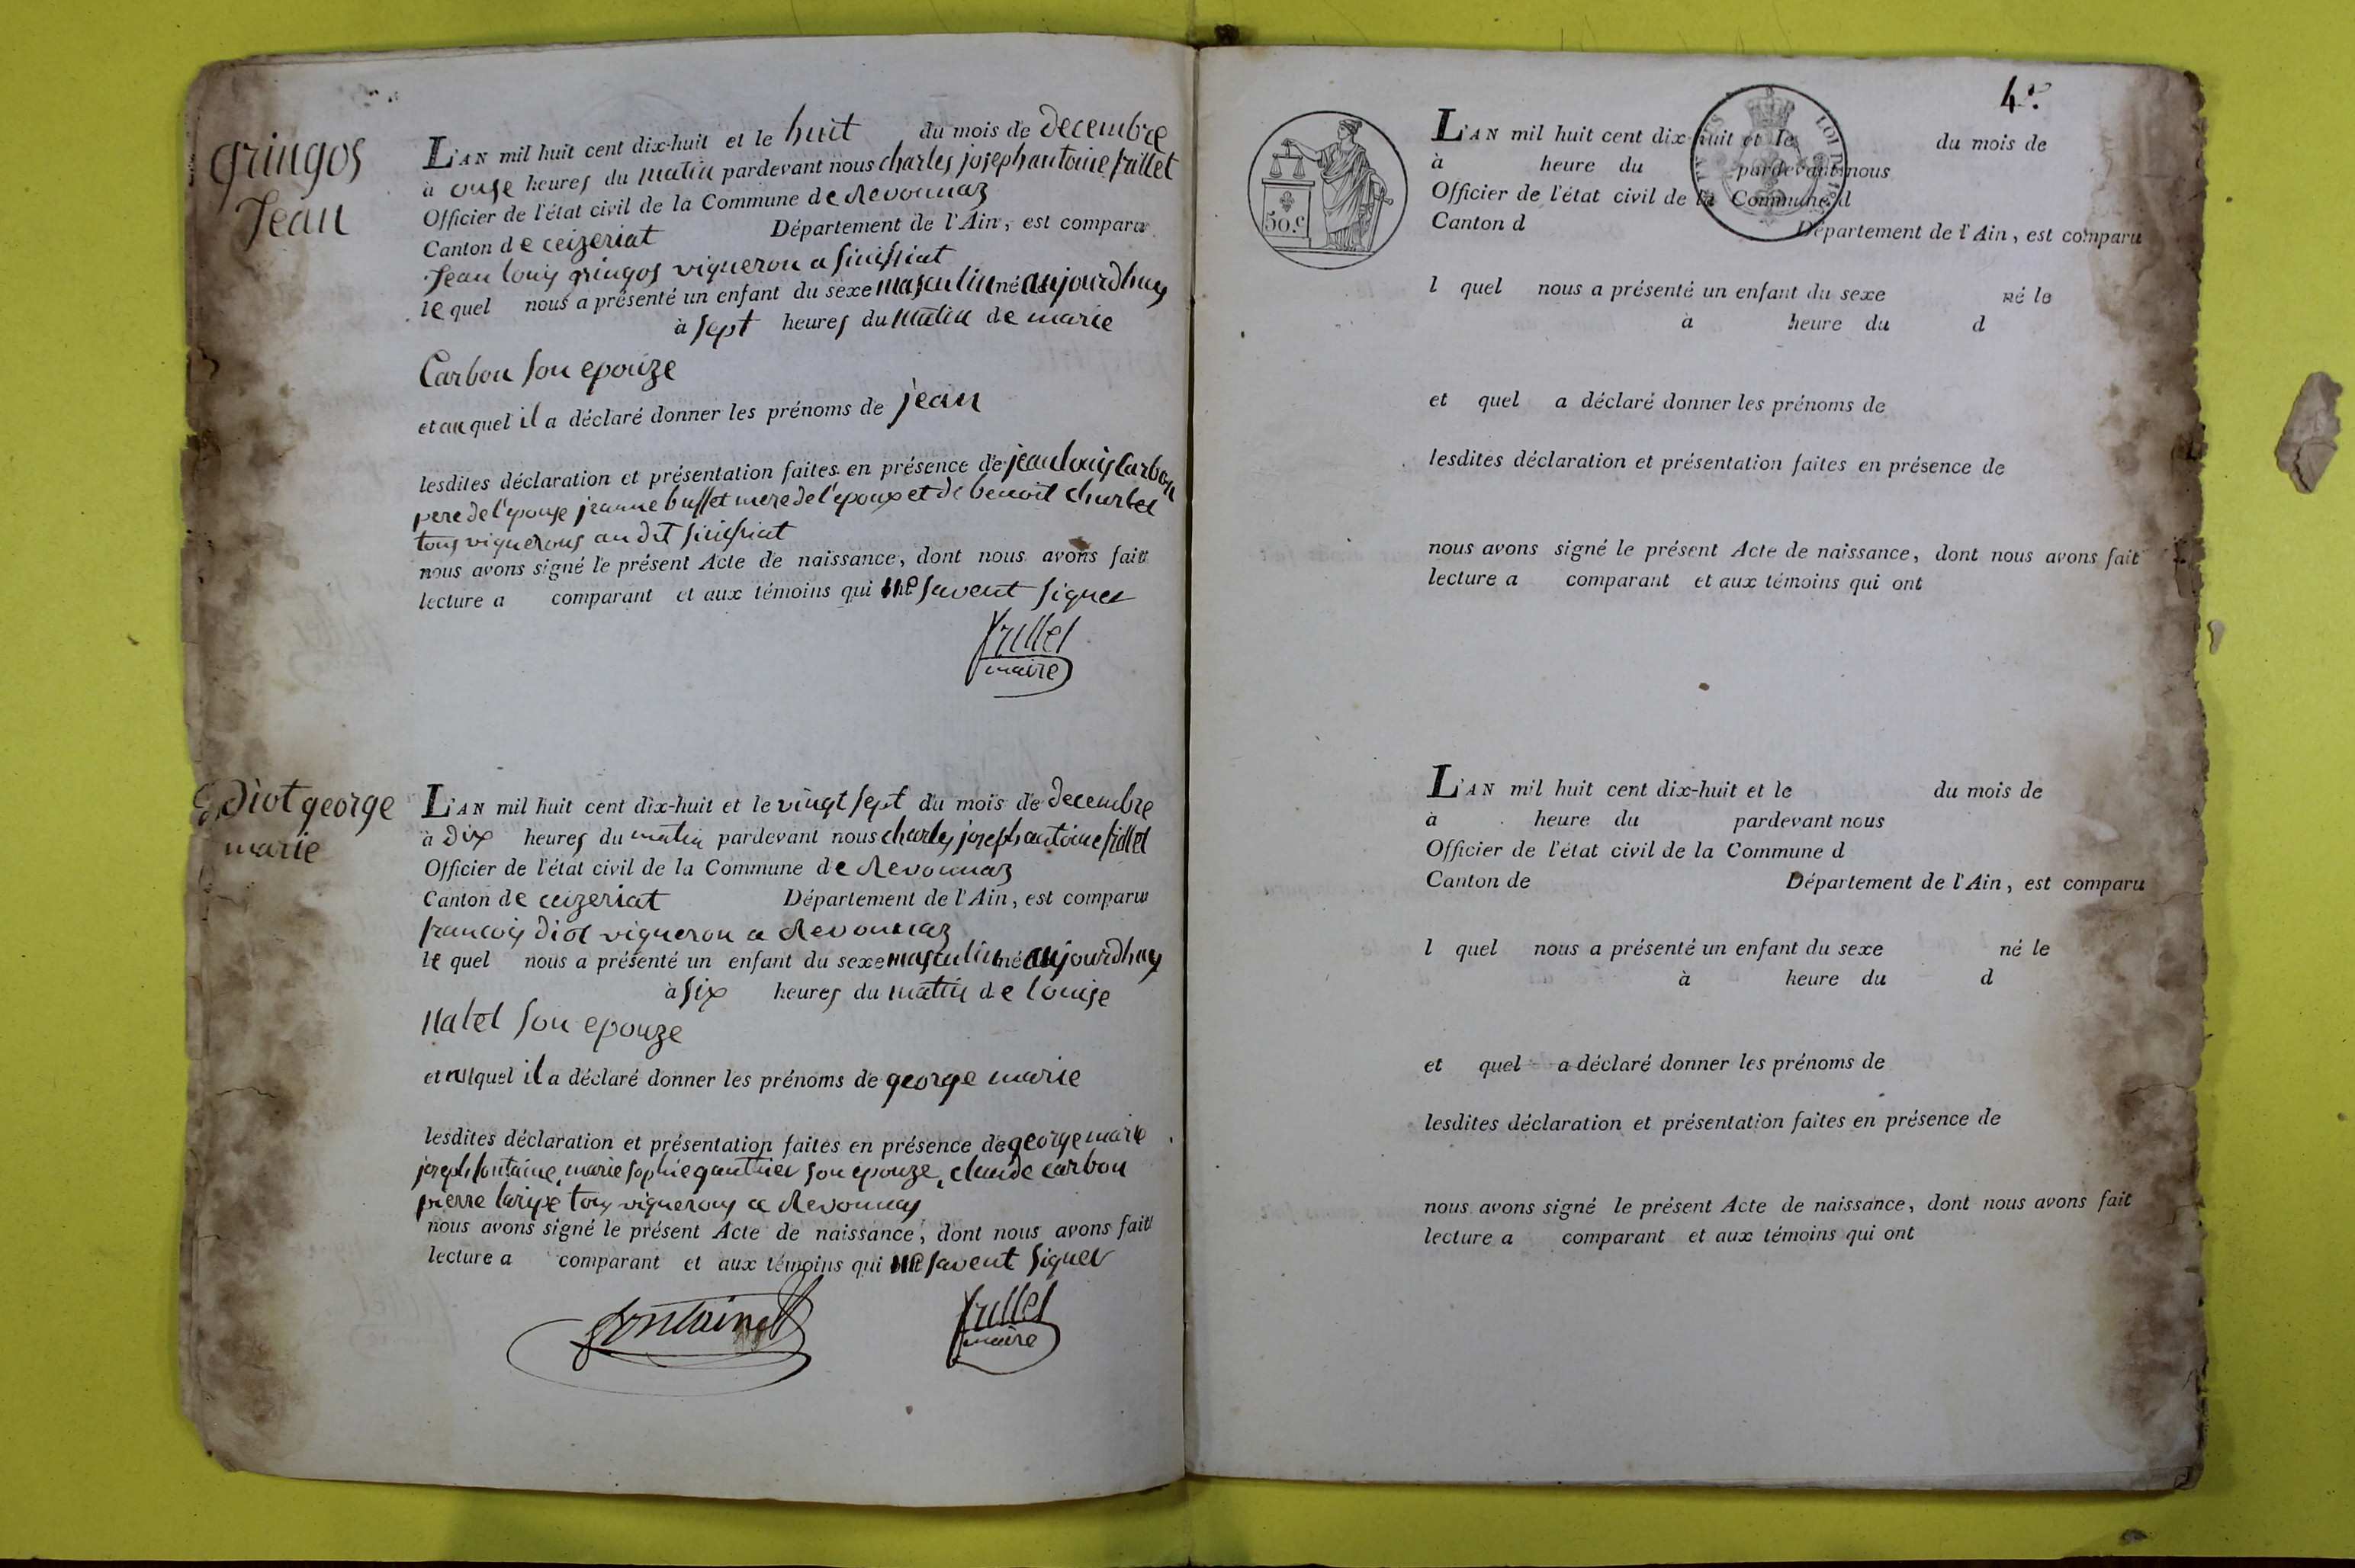 gringos
Jean
L'AN mil huit cent dix-huit et le huit du mois de decembre
à onze heures du matin pardevant nous charles joseph antoine frillet
Officier de l'état civil de la Commune de Revonnaz
Canton de ceizeriat Département de l'Ain, est comparu
Jean louis gringos vigneron a
le quel nous a présenté un enfant du sexe masculin né aujourdhuy
à sept heures du matin de marie
Carbon son epouze
et au quel il a déclaré donner les prénoms de jean
lesdites déclaration et présentation faites en présence de jean louis Carbon
pere de l'epouse jeanne buffet mere de l'epoux et de benoit
tous vignerons au dit
nous avons signé le présent Acte de naissance, dont nous avons fait
lecture a comparant et aux témoins qui ne savent signer
frillet
maire
diot george
marie
L'AN mil huit cent dix-huit et le vingt sept du mois de decembre
à dix heures du matin pardevant nous charles joseph antoine frillet
Officier de l'état civil de la Commune de Revonnaz
Canton de ceizeriat Département de l'Ain, est comparu
francois diot vigneron a Revonnaz
le quel nous a présenté un enfant du sexe masculin né aujourdhuy
à six heures du matin de louise
Natel son epouze
et auquel il a déclaré donner les prénoms de george marie
lesdites déclaration et présentation faites en présence de george marie
joseph fontaine, marie sophie gauthier son epouze, claude carbon
pierre tous vignerons a Revonnas
nous avons signé le présent Acte de naissance, dont nous avons fait
lecture a comparant et aux témoins qui ne savent signer
fontaine
frillet
maire
4
50.c
L'AN mil huit cent dix-huit et le du mois de
à heure du pardevant nous
Officier de l'état civil de la Commune d
Canton d Département de l'Ain, est comparu
l quel nous a présenté un enfant du sexe né le
à heure du d
et quel a déclaré donner les prénoms de
lesdites déclaration et présentation faites en présence de
nous avons signé le présent Acte de naissance, dont nous avons fait
lecture a comparant et aux témoins qui ont
L'AN mil huit cent dix-huit et le du mois de
à heure du pardevant nous
Officier de l'état civil de la Commune d
Canton de Département de l'Ain, est comparu
l quel nous a présenté un enfant du sexe né le
à heure du d
et quel a déclaré donner les prénoms de
lesdites déclaration et présentation faites en présence de
nous avons signé le présent Acte de naissance, dont nous avons fait
lecture a comparant et aux témoins qui ont